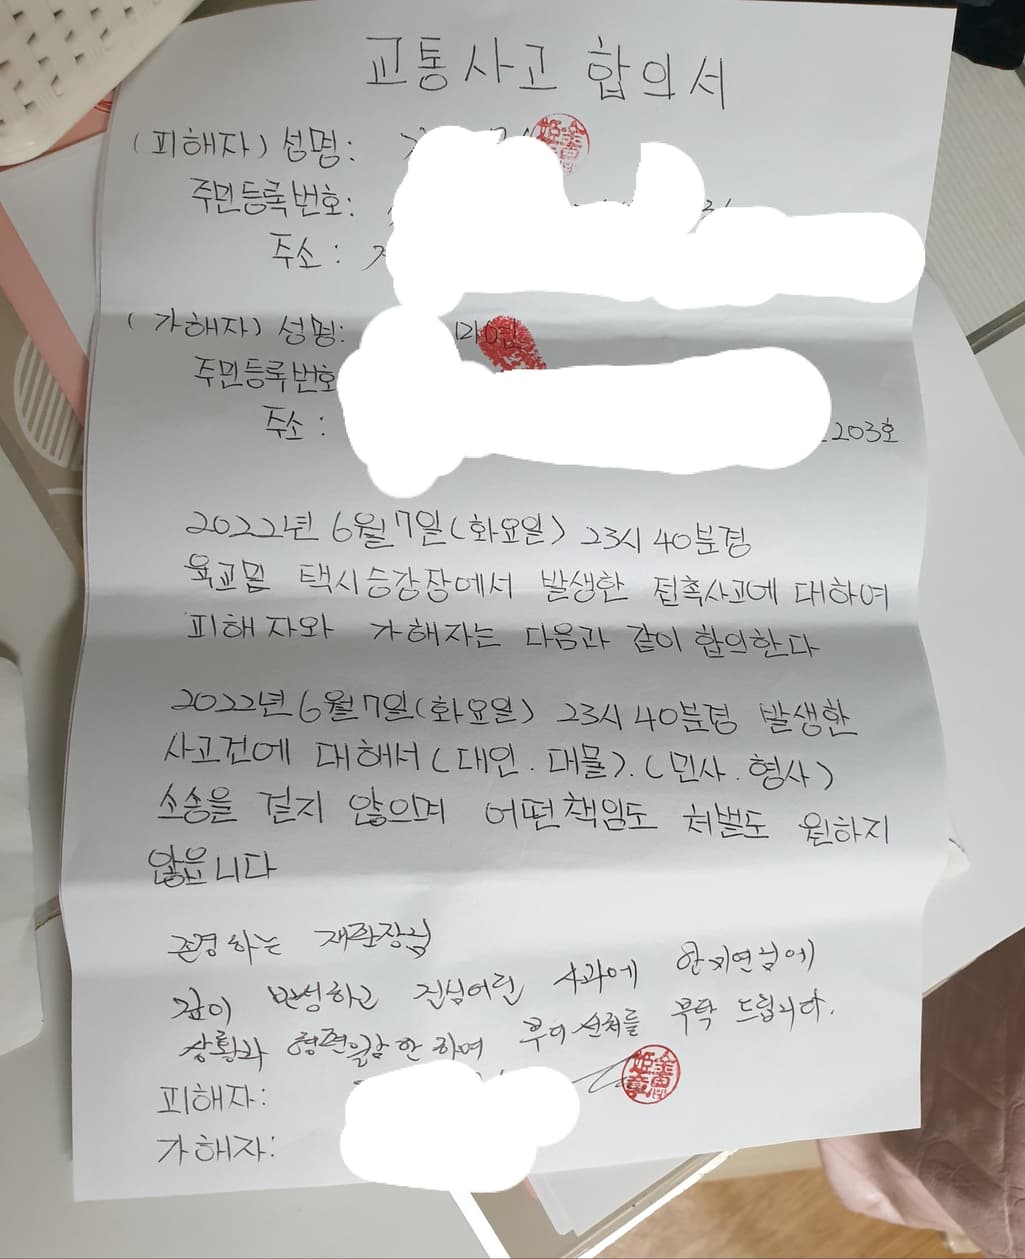 교통사고 합의서
(피해자) 성명:
주민등록번호:
주소 :
(가해자) 성명:
주민등록번호
주소 : 203호
2022년 6월 7일(화요일) 23시 40분경
육교밑 택시승강장에서 발생한 접촉사고에 대하여
피해자와 가해자는 다음과 같이 합의한다
2022년 6월 7일(화요일) 23시 40분경 발생한
사고건에 대해서(대인.대물).(민사.형사)
소송을 걸지 않으며 어떤책임도 처벌도 원하지
않읍니다
존경하는 재판장님
깊이 반성하고 진심어린 사과에 한지연님에
상황과 형편을감안하며 부디 선처를 부탁 드립니다.
피해자:
가해자: